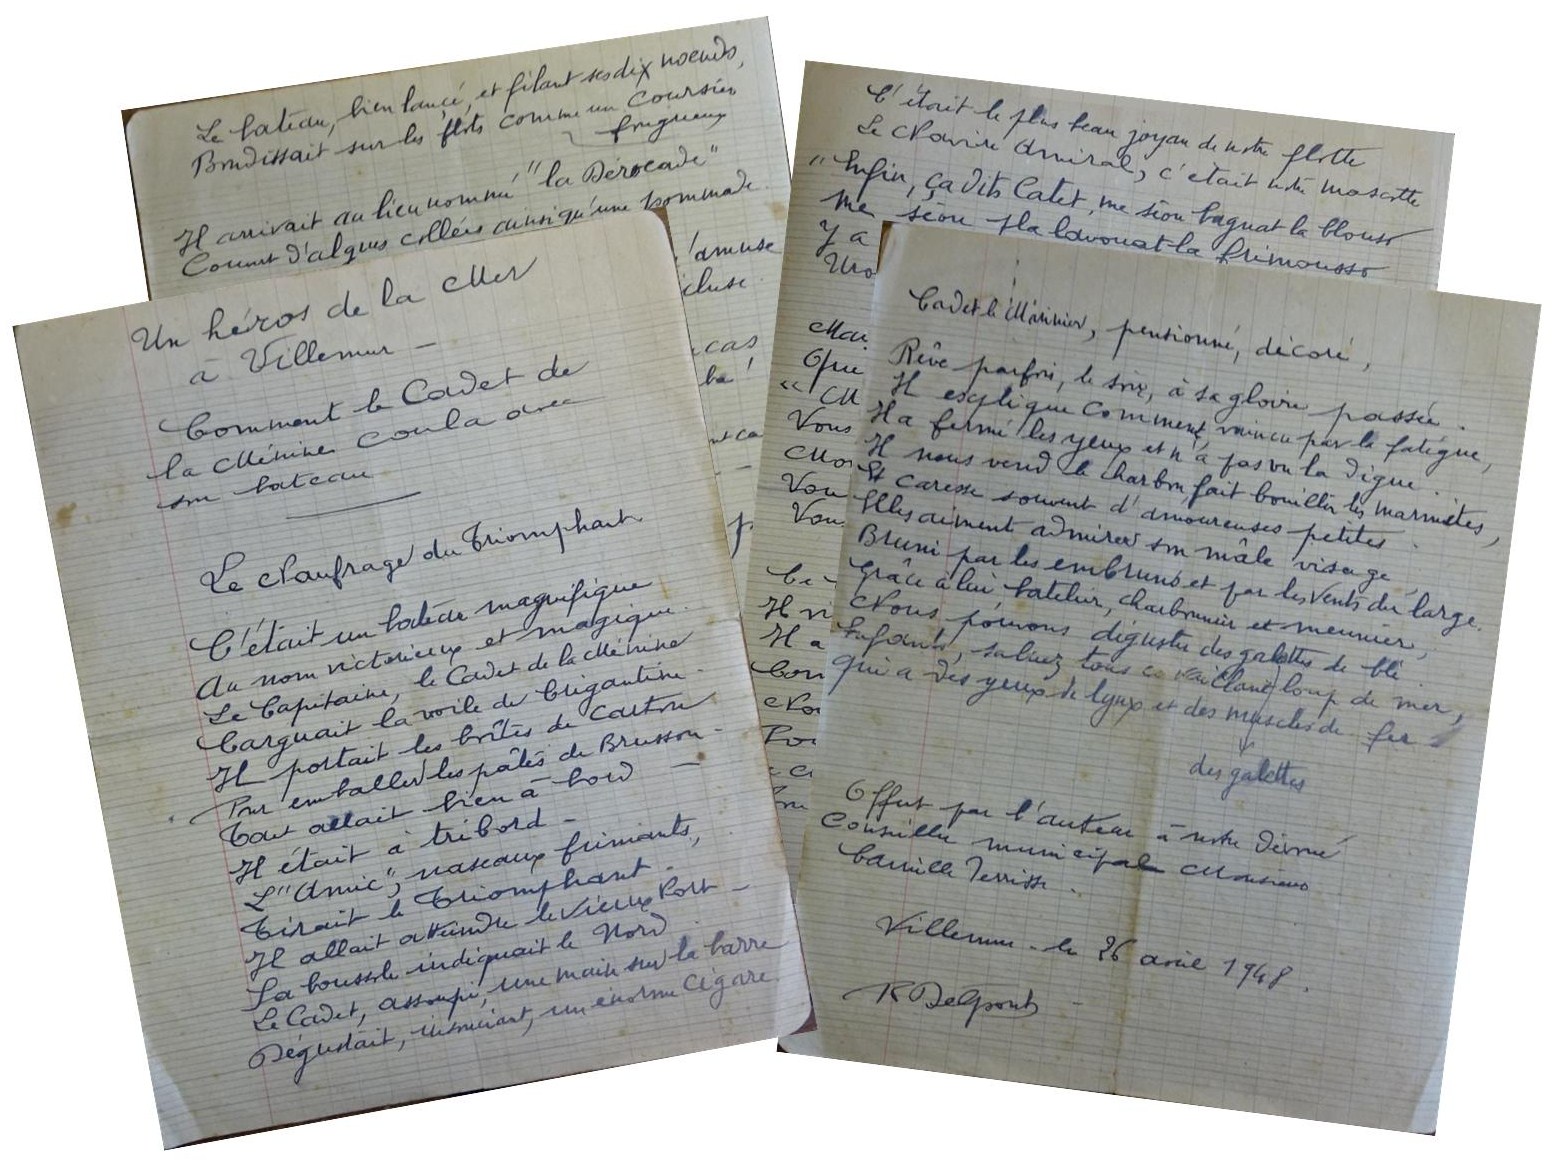 Le bateau, bien lancé, et filant ses dix noeuds,
Bondissait sur les flots comme un coursier
fougueux
Il arrivait au lieu nommé "la Dérocade"
Couvert d'algues collées ainsi qu'une pommade.
l'amuse
cluse.
cas
Un héros de la Mer
à Villemur –
Comment le Cadet de
la Mérine coula avec
son bateau
Le Naufrage du Triomphant
C'était un bateau magnifique
Au nom victorieux et magique.
Le Capitaine, le Cadet de la Mérine
Carguait la voile de brigantine.
Il portait les boîtes de carton
Pour emballer les pâtes de Brusson –
Tout allait bien à bord –
Il était à tribord –
L'"Amic", naseaux fumants,
Tirait le Triomphant.
Il allait atteindre le Vieux Port –
La boussole indiquait le Nord
Le Cadet, assoupi, une main sur la barre
Dégustait, insouciant, un énorme cigare
C'était le plus beau joyau de notre flotte
Le Navire Amiral, c'était notre mascotte
"Enfin, ça dits Catet, me séou bagnat la blouso
Me séou pla lavouat la frimousso
Y a
Mai
Que
Vous
Vou
Vou
Il vi
Il a
Cadet le Marinier, pensionné, décoré,
Rêve parfois, le soir, à sa gloire passée.
Il explique comment, vaincu par la fatigue,
Il a fermé les yeux et n'a pas vu la digue.
Il nous vend le charbon, fait bouillir les marmites,
Et caresse souvent d'amoureuses petites.
Elles aiment admirer son mâle visage
Bruni par les embruns et par les vents du large.
Grâce à lui, batelier, charbonnier et meunier,
Nous pouvons déguster des galettes de blé
Enfants, saluez tous ce vaillant loup de mer,
Qui a des yeux de lynx et des muscles de fer
des galettes
Offert par l'auteur à notre dévoué
Conseiller municipal Monsieur
Camille Terrisse.
Villemur – le 26 avril 1948.
R Delpont –